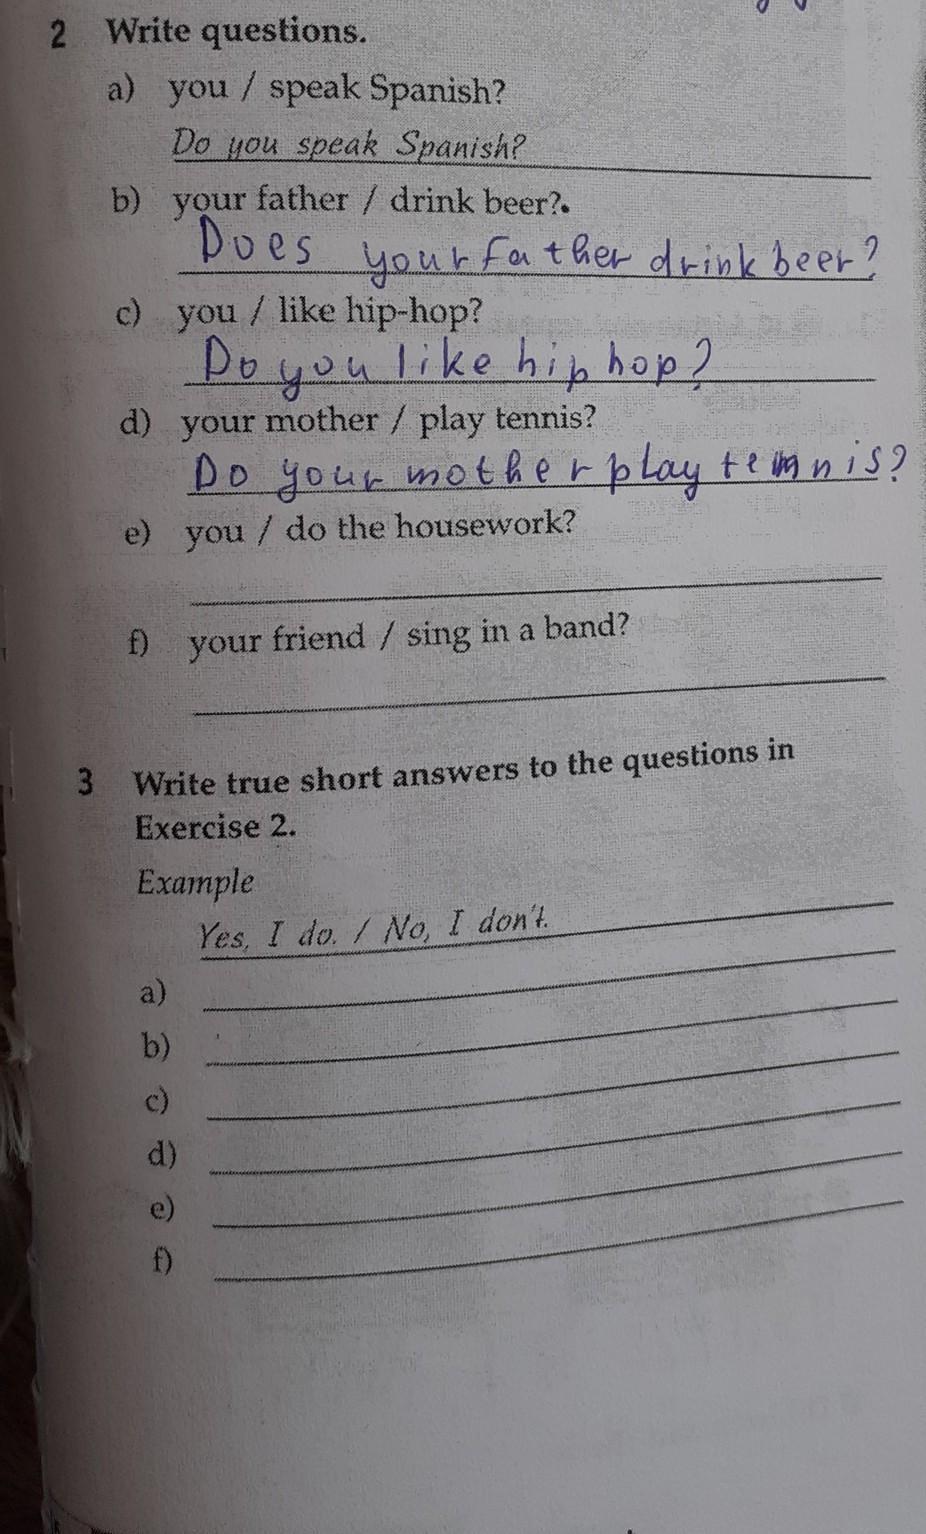 2 Write questions.
a) you / speak Spanish?
Do you speak Spanish?
b) your father / drink beer?.
Does your father drink beer?
c) you / like hip-hop?
Do you like hip hop?
d) your mother / play tennis?
Do your mother play tennis?
e) you / do the housework?
f) your friend / sing in a band?
3 Write true short answers to the questions in
Exercise 2.
Example
Yes, I do. / No, I don't.
a)
b)
c)
d)
e)
f)